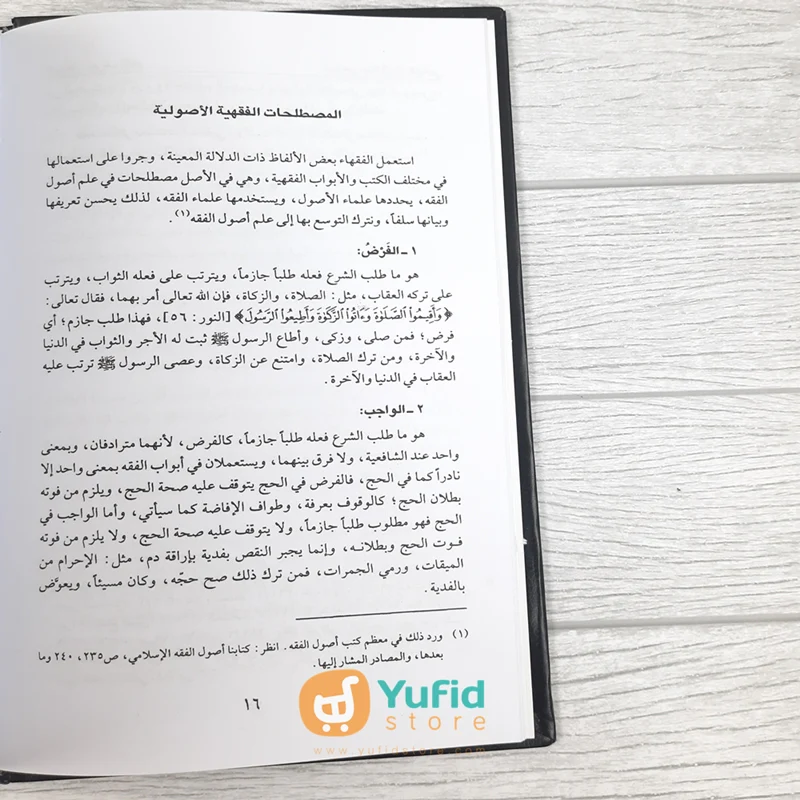 المصطلحات الفقهية الأصولية
استعمل الفقهاء بعض الألفاظ ذات الدلالة المعينة، وجروا على استعمالها
في مختلف الكتب والأبواب الفقهية، وهي في الأصل مصطلحات في علم أصول
الفقه، يحددها علماء الأصول، ويستخدمها علماء الفقه، لذلك يحسن تعريفها
وبيانها سلفاً، ونترك التوسع بها إلى علم أصول الفقه(١).
١ ـ الفَرْضُ:
هو ما طلب الشرع فعله طلباً جازماً، ويترتب على فعله الثواب، ويترتب
على تركه العقاب، مثل: الصلاة، والزكاة، فإن الله تعالى أمر بهما، فقال تعالى:
﴿وَأَقِيمُوا۟ ٱلصَّلَوٰةَ وَءَاتُوا۟ ٱلزَّكَوٰةَ وَأَطِيعُوا۟ ٱلرَّسُولَ﴾ [النور: ٥٦]، فهذا طلب جازم؛ أي
فرض؛ فمن صلى، وزكى، وأطاع الرسول ﷺ ثبت له الأجر والثواب في الدنيا
والآخرة، ومن ترك الصلاة، وامتنع عن الزكاة، وعصى الرسول ﷺ ترتب عليه
العقاب في الدنيا والآخرة.
٢ ـ الواجب:
هو ما طلب الشرع فعله طلباً جازماً، كالفرض، لأنهما مترادفان، وبمعنى
واحد عند الشافعية، ولا فرق بينهما، ويستعملان في أبواب الفقه بمعنى واحد إلا
نادراً كما في الحج، فالفرض في الحج يتوقف عليه صحة الحج، ويلزم من فوته
بطلان الحج؛ كالوقوف بعرفة، وطواف الإفاضة كما سيأتي، وأما الواجب في
الحج فهو مطلوب طلباً جازماً، ولا يتوقف عليه صحة الحج، ولا يلزم من فوته
فوت الحج وبطلانه، وإنما يجبر النقص بفدية بإراقة دم، مثل: الإحرام من
الميقات، ورمي الجمرات، فمن ترك ذلك صح حجّه، وكان مسيئاً، ويعوَّض
بالفدية.
(١) ورد ذلك في معظم كتب أصول الفقه. انظر: كتابنا أصول الفقه الإسلامي، ص٢٣٥، ٢٤٠ وما
بعدها، والمصادر المشار إليها.
١٦
Yufid
store
www.yufidstore.com